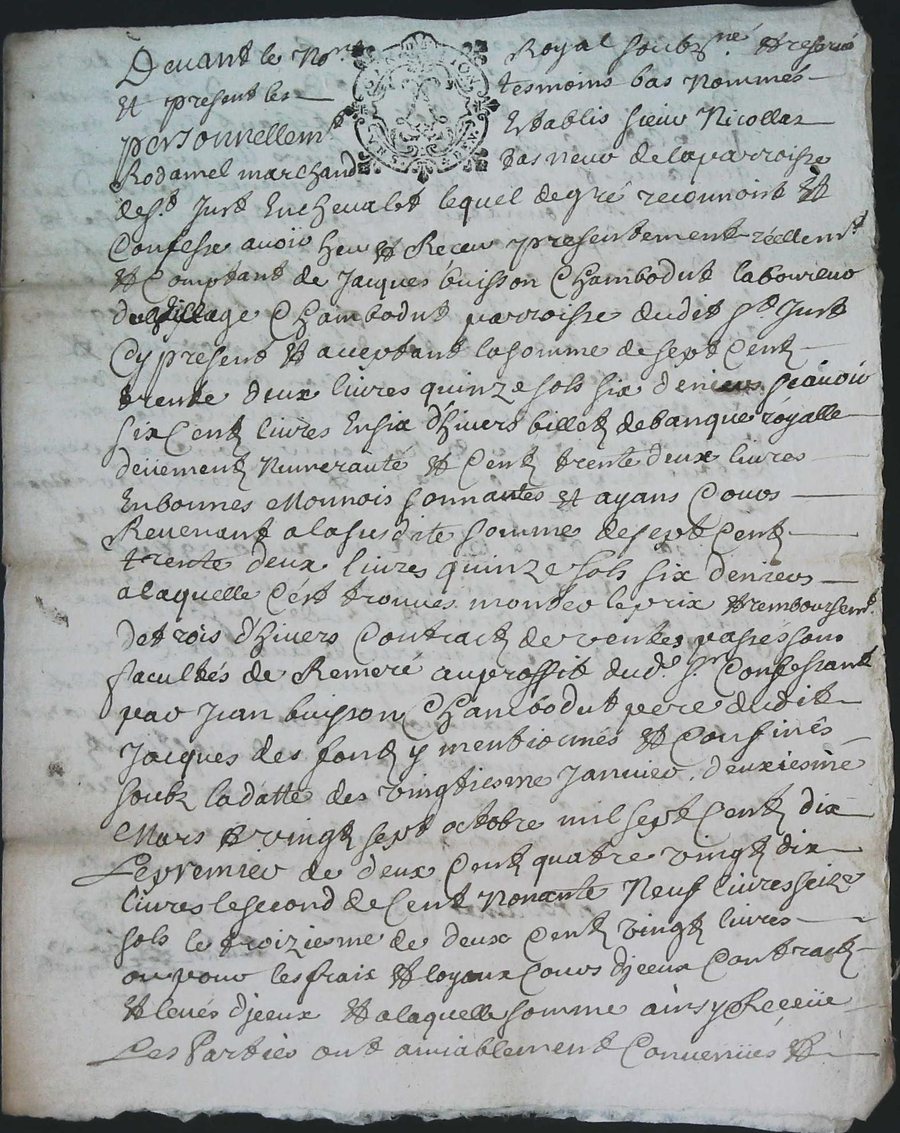 Devant le No.re Royal soubz.né et reservé
Et present les tesmoins bas nommés
personnellem.t Establis sieur Nicollas
Rodamel marchand tasneur de la parroisse
de s.t Just En chevalet lequel de gré reconnoist Et
Confesse avoir heu et Receu presentement reellem.t
et Comptant de Jacques buisson Chambodut laboureur
du village Chambodut parroisse dudit s.t Just
Cy present et aceptant la somme de sept Centz
trente deux livres quinze sols six deniers scavoir
six Centz livres En six d'hivers billetz de banque royalle
deüement et Centz trente deux livres
En bonnes Monnois sonnantes et ayans Cours
Revenant a la susdite somme de sept Centz
trente deux livres quinze sols six deniers
a laquelle c'est trouvés monter le prix et remboursem.t
de trois d'hivers Contractz de ventes passés sous
facultés de Remeré au proffit dud.t s.r Confessant
par Jean buisson Chambodut pere dudit
Jacques des fontz y mentionnés et Confinés
soubz la datte des vingtiesme Janvier, deuxiesme
Mars et vingtz sept octobre mil sept Centz dix
Le premier de deux Centz quatre vingtz dix
livres le second de Cent Nonante Neuf livres seize
sols le troizieme de deux Centz vingtz livres
ou pour les frais et loyaux Cours d'jceux Contractz
et levés d'jceux et a laquelle somme ainsy Receüe
Les Parties ont amiablement Convenües et